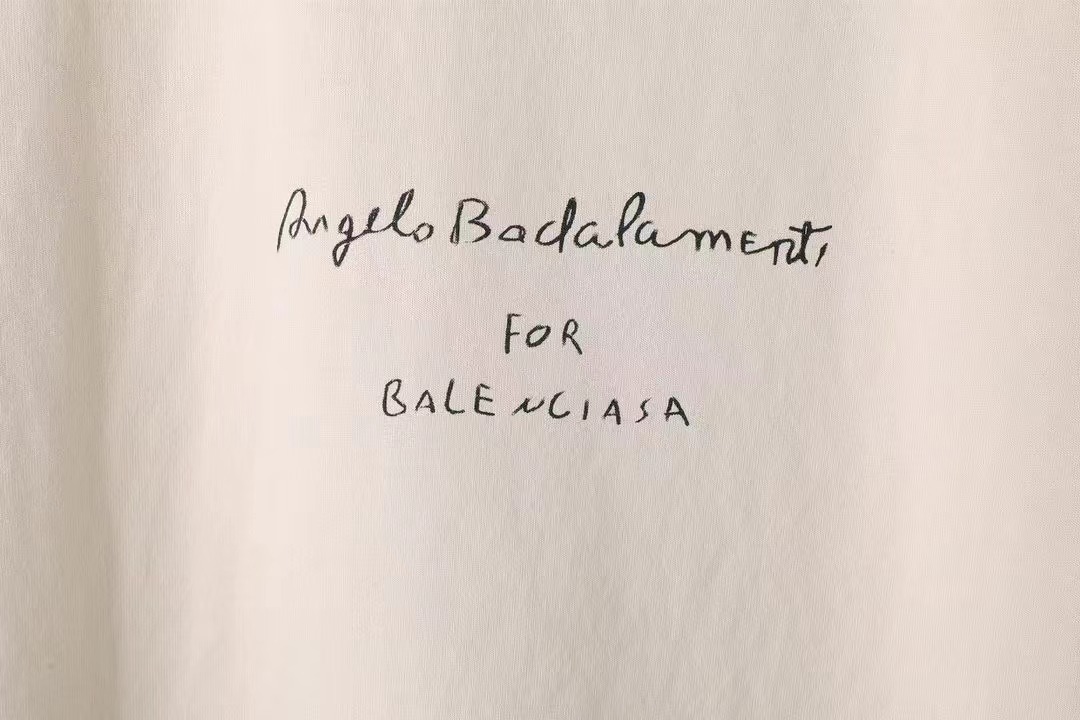 Angelo Badalamenti
FOR
BALENCIASA